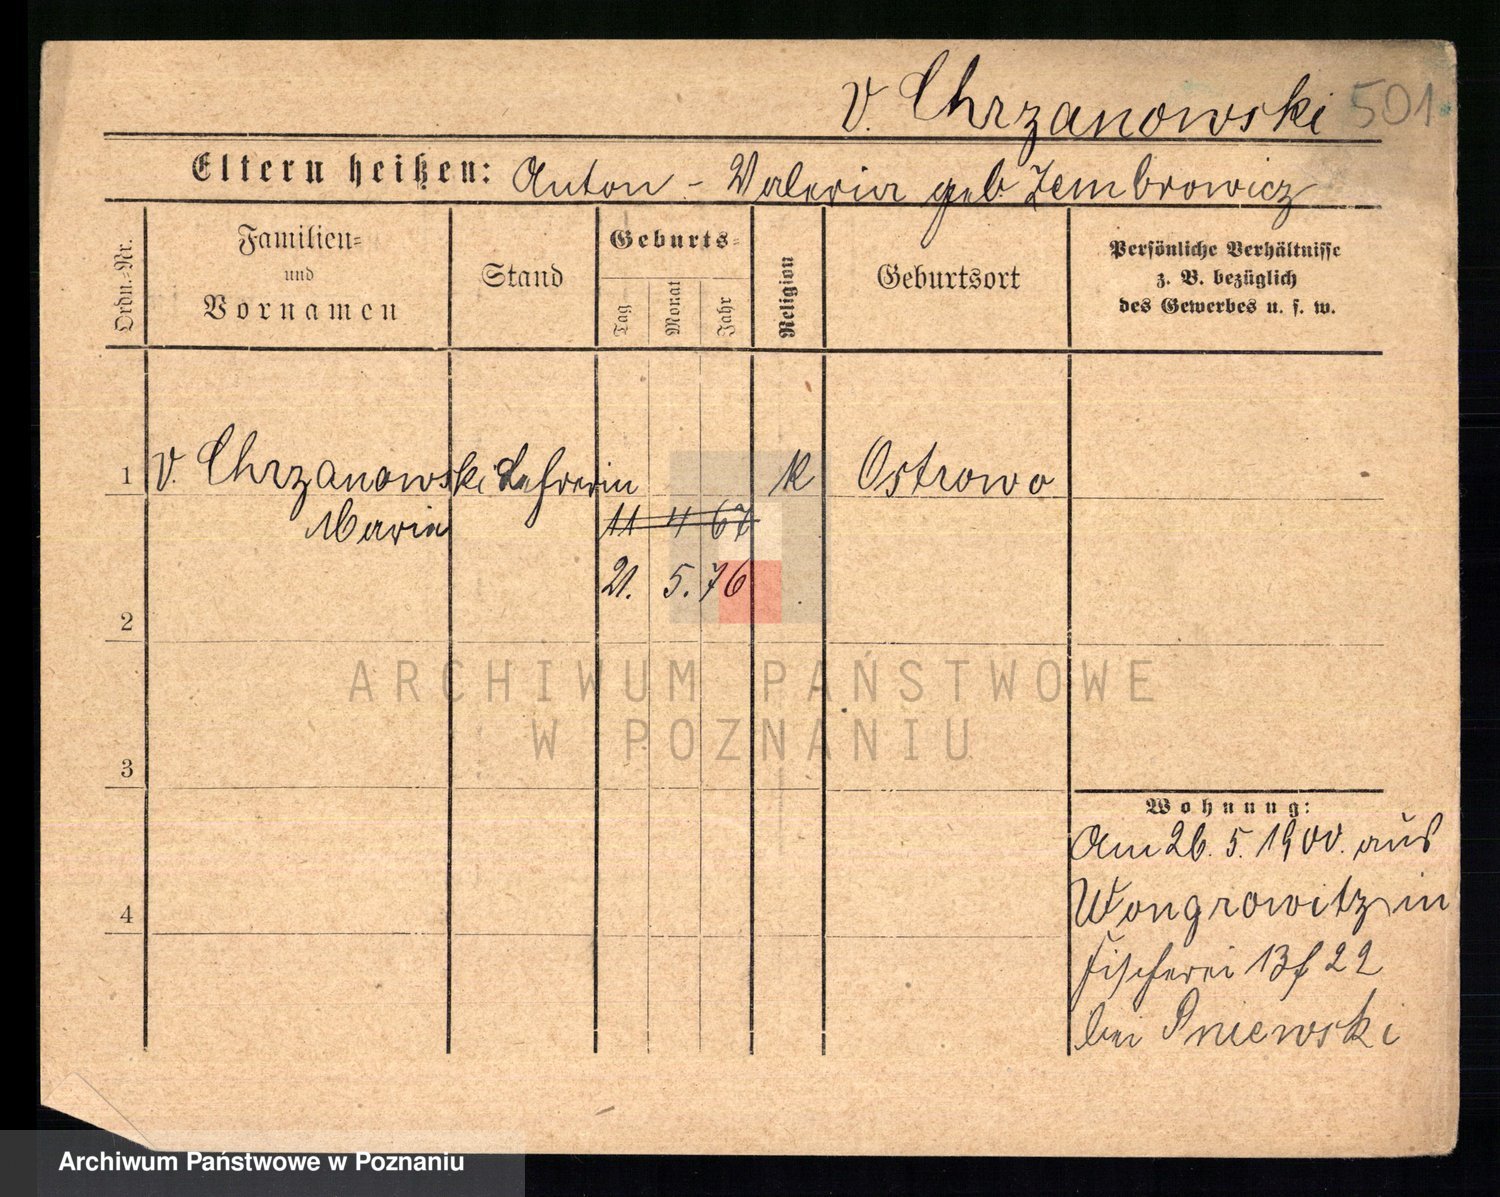 v. Chrzanowski 501.
Eltern heißen: Anton - Valeria geb. Zembrowicz
Ordn.-Nr.
Familien-
und
Vornamen
Stand
Geburts-
Tag
Monat
Jahr
Religion
Geburtsort
Persönliche Verhältnisse
z. B. bezüglich
des Gewerbes u. s. w.
1 v. Chrzanowski Lehrerin k Ostrowo
Maria 11 4 67
21. 5. 76
2
ARCHIWUM PAŃSTWOWE
W POZNANIU
3
Wohnung:
Am 26. 5. 1900. aus
Wongrowitz in
4
Fischerei 13 f 22
bei Pniewski
Archiwum Państwowe w Poznaniu